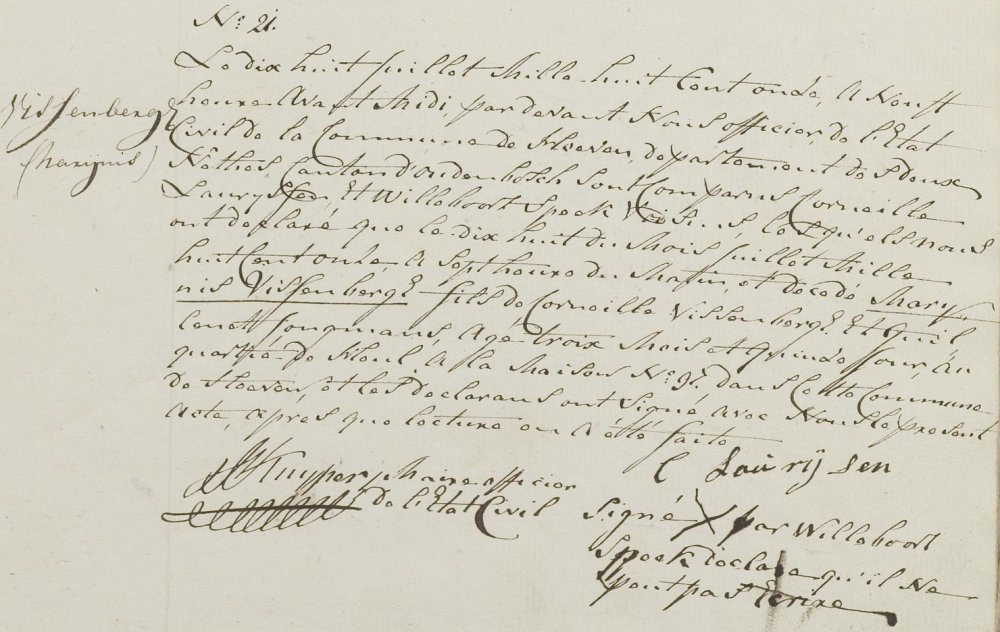 N.º 21.
Le dix huit Juillet Mille huit Cent onde, A Neuf
heure Avant Midi, par devant Nous officier, de l'Etat
Civil de la Commune de Hoeven, departement des deux
Nethes, Canton d'oudenbosch sont Comparus Corneille
Laurÿssen, Et Willeboort Speek Voisins lesquels nous
ont declaré que le dix huit du Mois Juillet Mille
huit Cent onde, A Sept heure du Matin, et decedé Mary
nis Vissenbergẽ fils de Corneille Vissenbergẽ Et
Jongmans, Agé troix Mois et quinde Jour, Au
quartie de A la Maison N.º 91, dans Cette Commune
De Hoeven, et les declarans ont Signé avec Nous le present
Acte, apres que lecture en A été faite
Vissenbergẽ
(Marynis)
Kuyper Maire officier
De l'Etat Civil
C Laurijsen
Signé X par Willeboort
Speek declare qu'il Ne
peut pas Ecrire